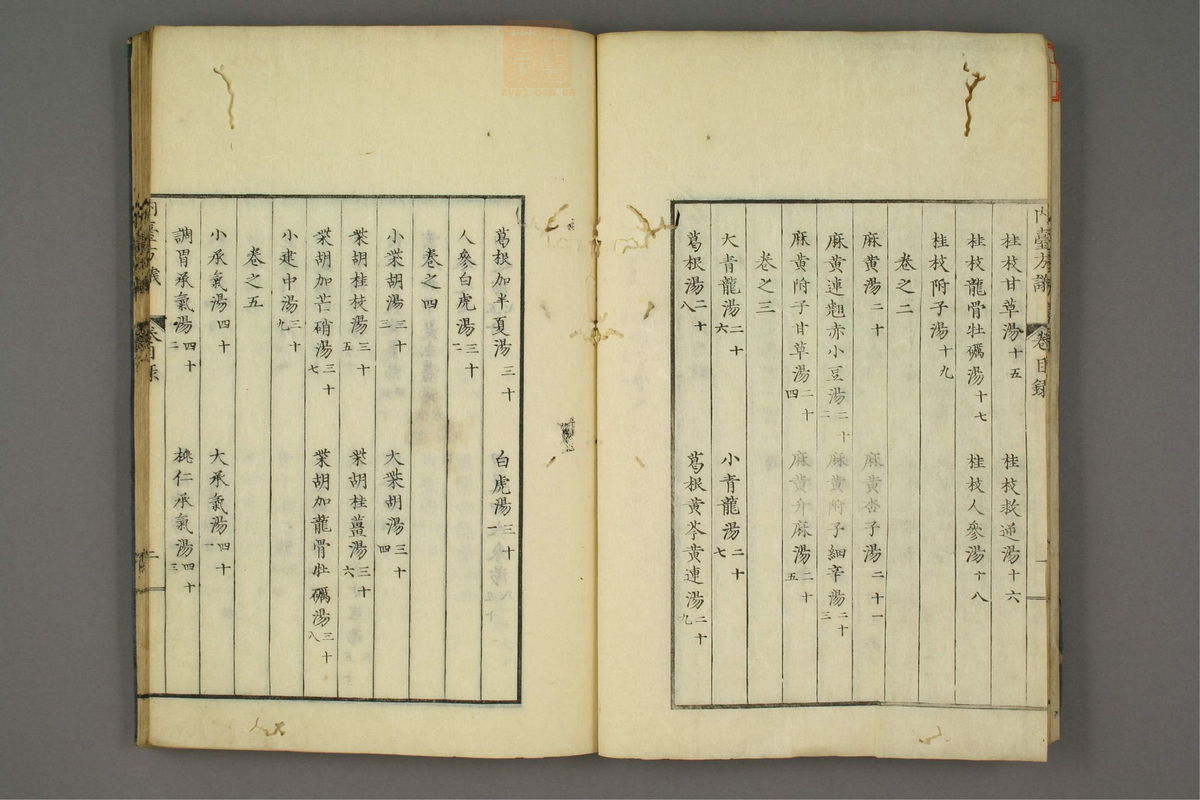 內臺方議 卷目錄 一
桂枝甘草湯十五 桂枝救逆湯十六
桂枝龍骨牡礪湯十七 桂枝人參湯十八
桂枝附子湯十九
卷之二
麻黃湯二十 麻黃杏子湯二十一
麻黃連翹赤小豆湯二十二 麻黃附子細辛湯二十三
麻黃附子甘草湯二十四 麻黃升麻湯二十五
卷之三
大青龍湯二十六 小青龍湯二十七
葛根湯二十八 葛根黃芩黃連湯二十九
葛根加半夏湯三十 白虎湯三十一
人參白虎湯三十二
卷之四
小柴胡湯三十三 大柴胡湯三十四
柴胡桂枝湯三十五 柴胡桂薑湯三十六
柴胡加芒硝湯三十七 柴胡加龍骨牡礪湯三十八
小建中湯三十九
卷之五
小承氣湯四十 大承氣湯四十一
調胃承氣湯四十二 桃仁承氣湯四十三
內臺方議 卷目錄 二